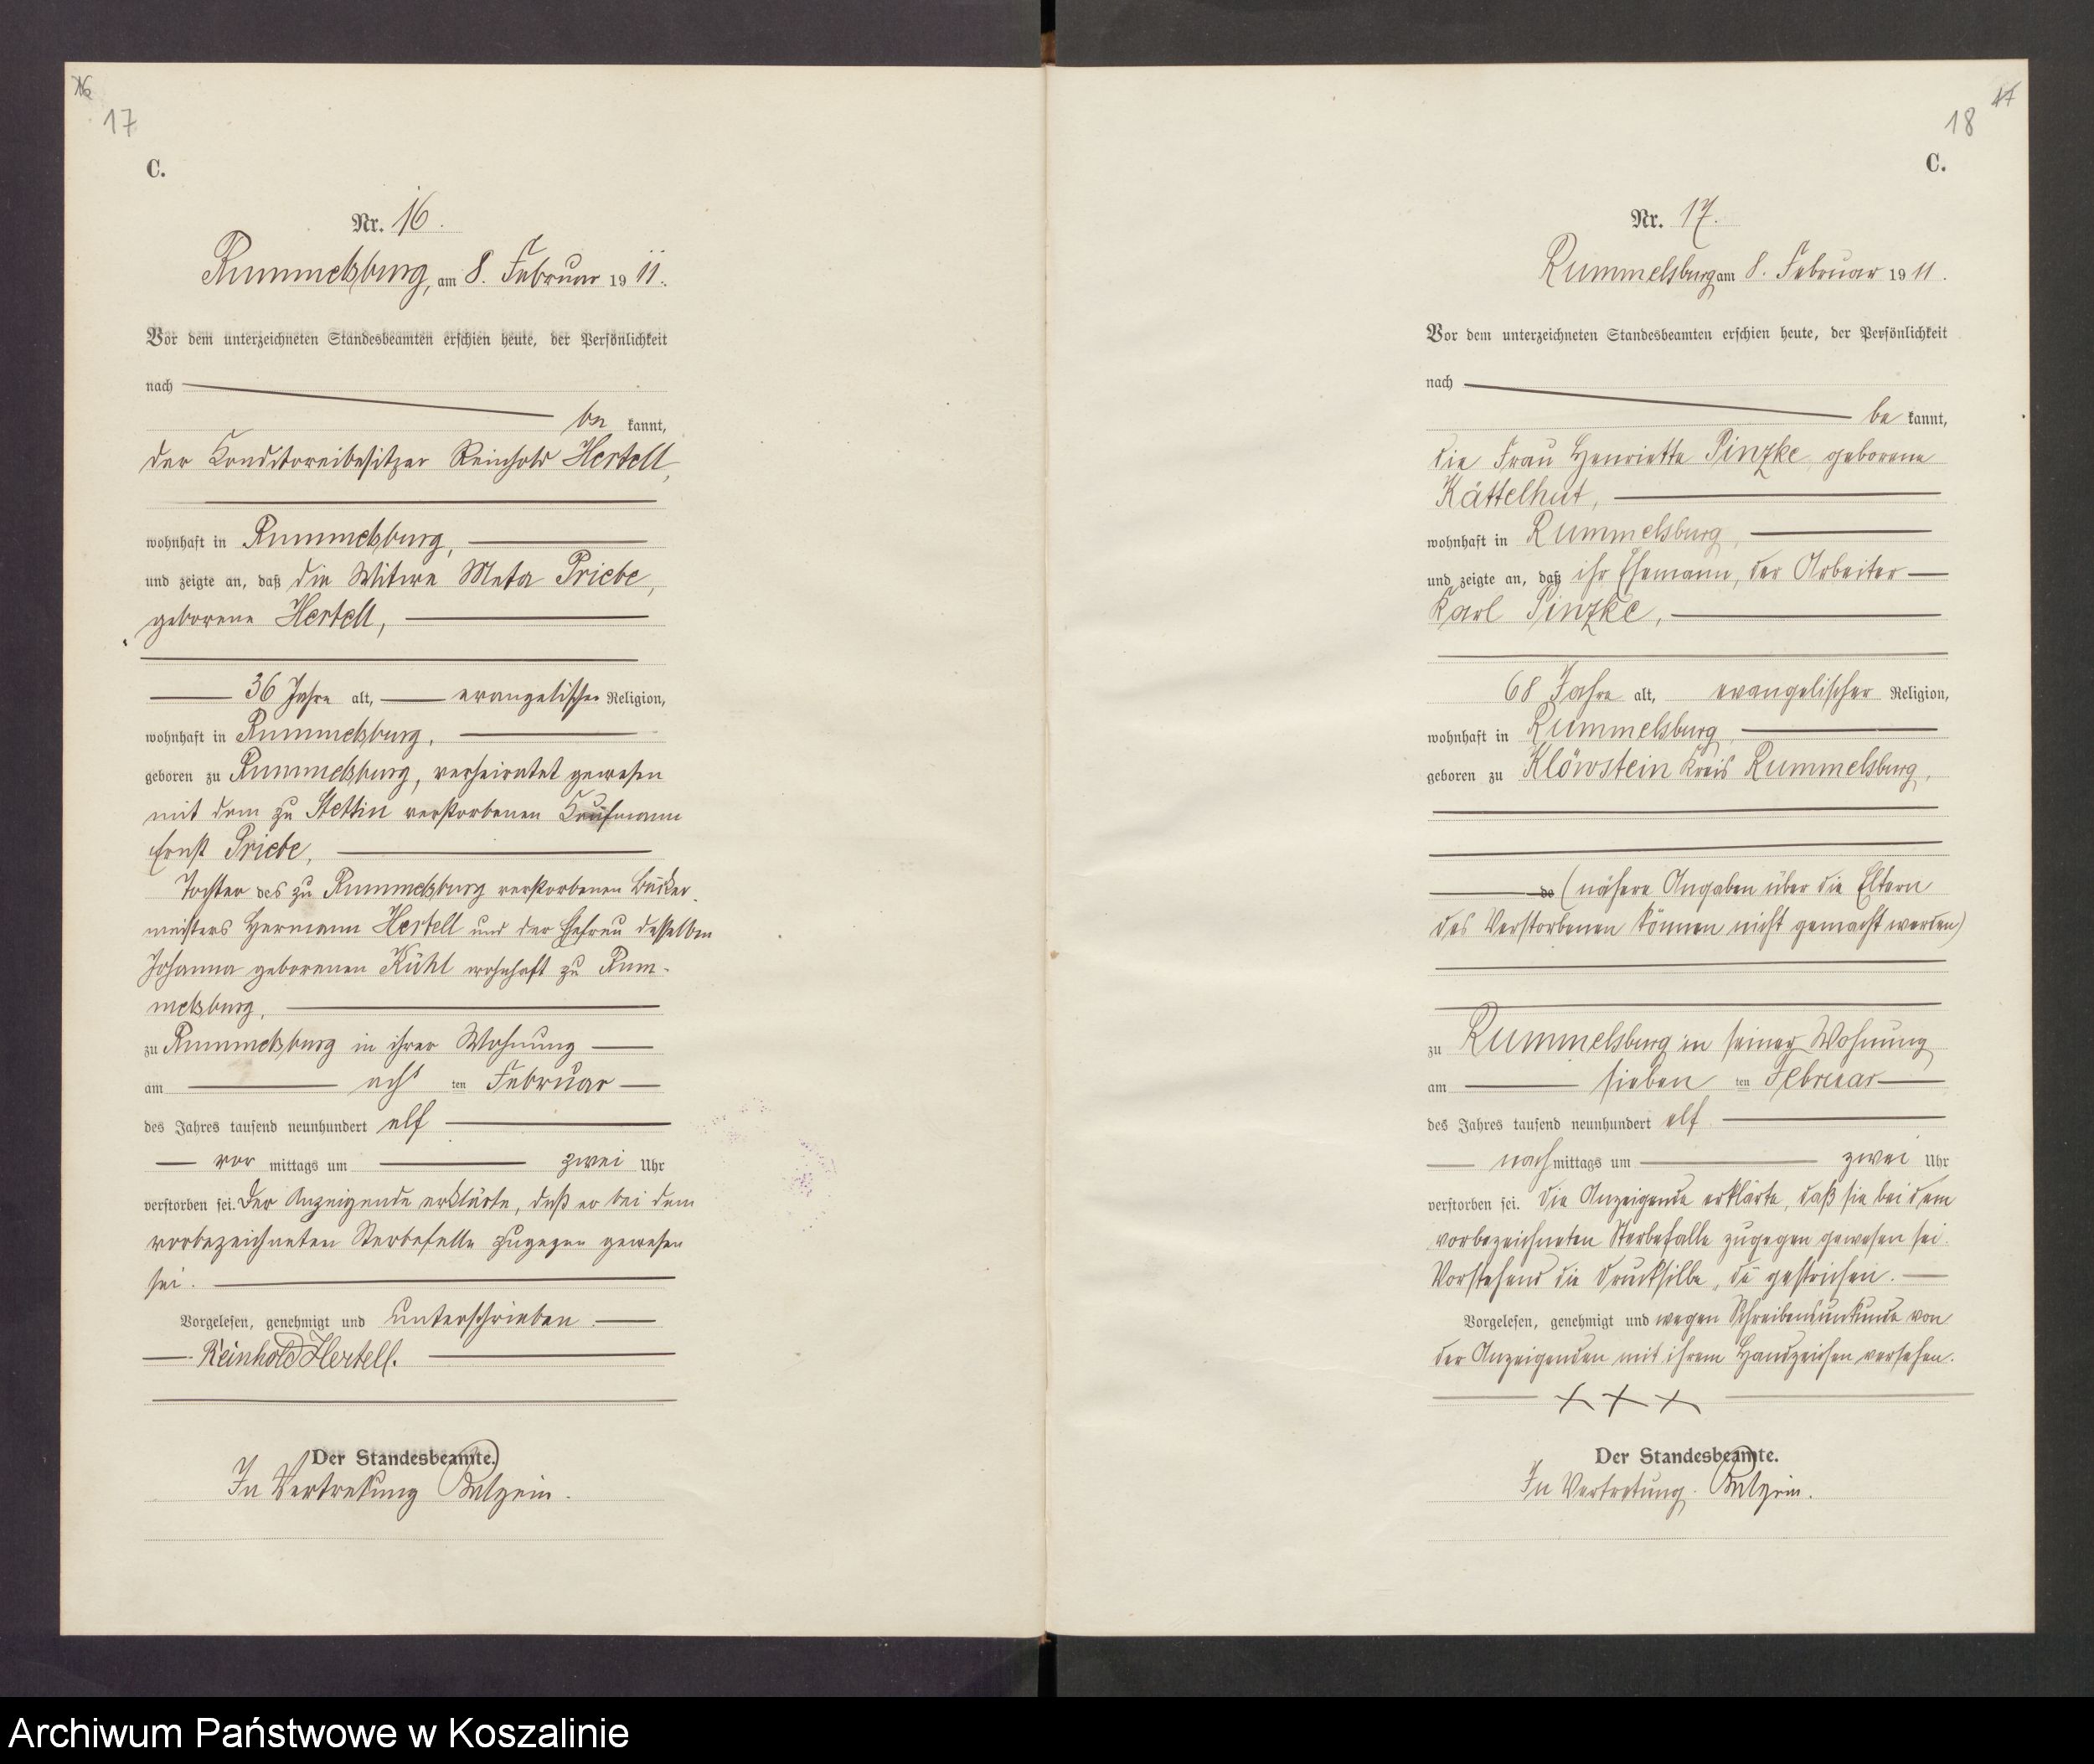 16
17
C.
Nr. 16.
Rummelsburg, am 8. Februar 1911.
Vor dem unterzeichneten Standesbeamten erschien heute, der Persönlichkeit
nach
be kannt,
der Conditoreibesitzer Reinhold Hertell,
wohnhaft in Rummelsburg,
und zeigte an, daß die Witwe Meta Priebe,
geborene Hertell,
36 Jahre alt, evangelischer Religion,
wohnhaft in Rummelsburg,
geboren zu Rummelsburg, verheiratet gewesen
mit dem zu Stettin verstorbenen Kaufmann
Ernst Priebe,
Tochter des zu Rummelsburg verstorbenen Bäcker-
meisters Hermann Hertell und der Ehefrau desselben
Johanna geborenen Kühl wohnhaft zu Rum-
melsburg,
zu Rummelsburg in ihrer Wohnung
am acht ten Februar
des Jahres tausend neunhundert elf
vor mittags um zwei Uhr
verstorben sei. Der Anzeigende erklärte, daß er bei dem
vorbezeichneten Sterbefalle zugegen gewesen
sei.
Vorgelesen, genehmigt und unterschrieben.
Reinhold Hertell.
Der Standesbeamte.
In Vertretung
17
18
C.
Nr. 17.
Rummelsburg am 8. Februar 1911.
Vor dem unterzeichneten Standesbeamten erschien heute, der Persönlichkeit
nach
be kannt,
die Frau Henriette Pinzke geborene
Kättelhut,
wohnhaft in Rummelsburg,
und zeigte an, daß ihr Ehemann, der Arbeiter
Karl Pinzke,
68 Jahre alt, evangelischer Religion,
wohnhaft in Rummelsburg,
geboren zu Klöwstein Kreis Rummelsburg,
de (nähere Angaben über die Eltern
des Verstorbenen können nicht gemacht werden)
zu Rummelsburg in seiner Wohnung
am sieben ten Februar
des Jahres tausend neunhundert elf
nach mittags um zwei Uhr
verstorben sei. Die Anzeigende erklärte, daß sie bei dem
vorbezeichneten Sterbefalle zugegen gewesen sei.
Vorstehend die Drucksilbe „de" gestrichen.
Vorgelesen, genehmigt und wegen Schreibensunkunde von
der Anzeigenden mit ihrem Handzeichen versehen.
+ + +
Der Standesbeamte.
In Vertretung.
Archiwum Państwowe w Koszalinie